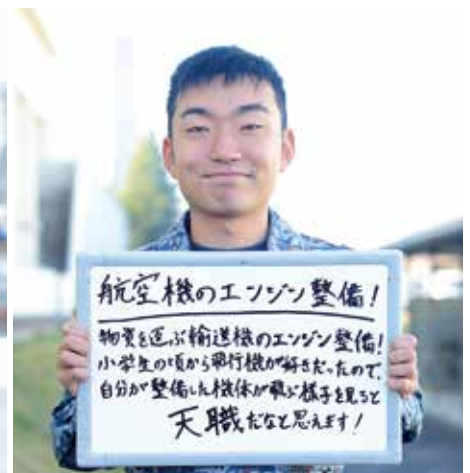 航空機のエンジン整備!
物資を運ぶ輸送機のエンジン整備!
小学生の頃から飛行機が好きだったので、
自分が整備した機体が飛ぶ様子を見ると
天職だなと思えます!